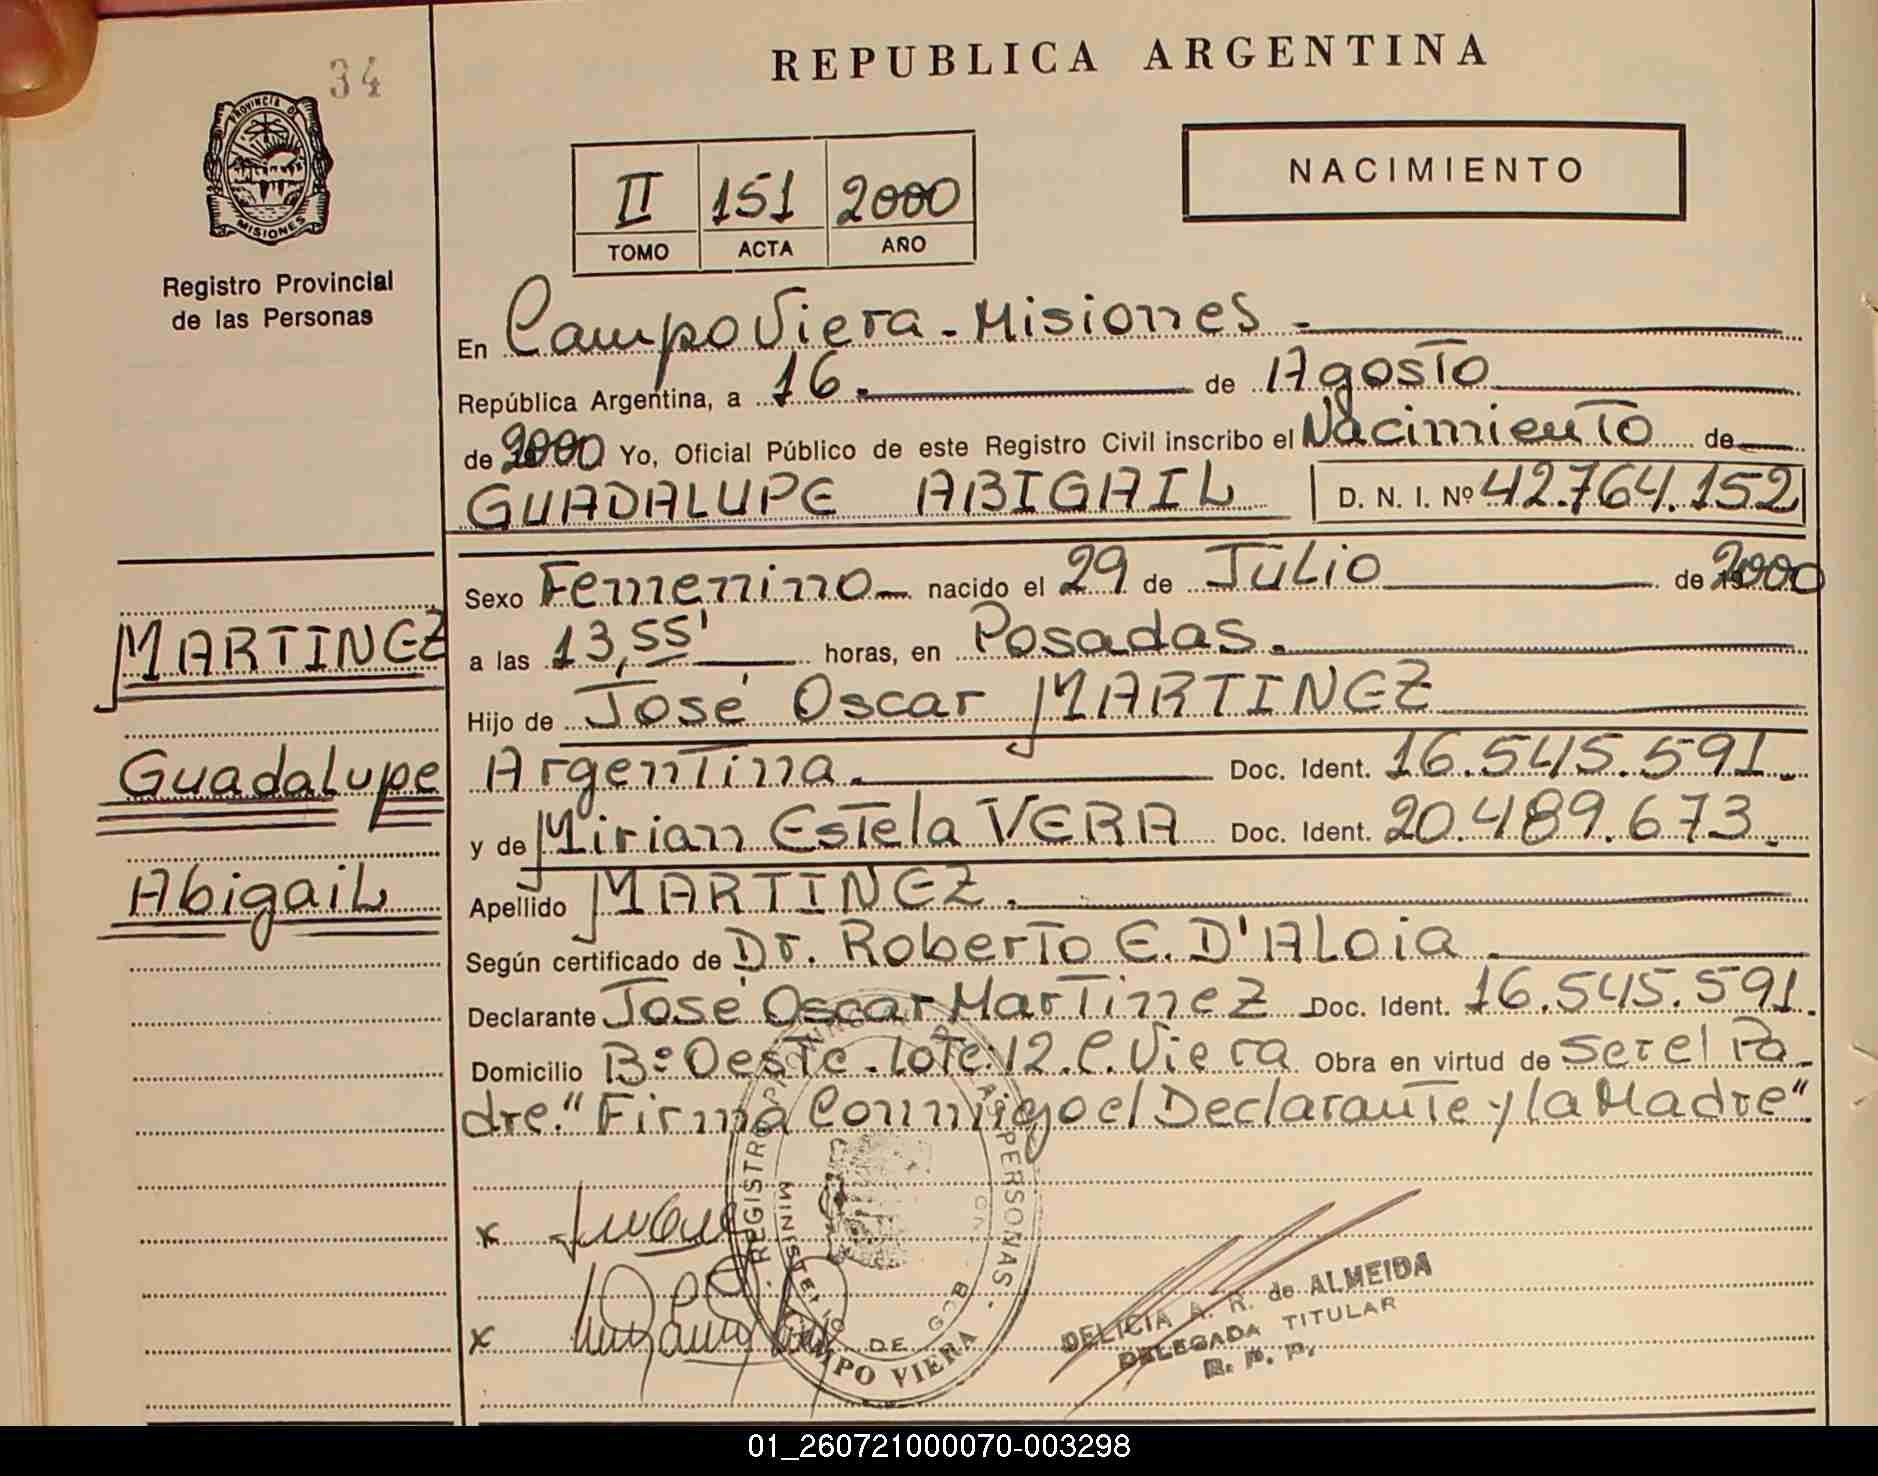 34
PROVINCIA DE
MISIONES
Registro Provincial
de las Personas
MARTINEZ
Guadalupe
Abigail
REPUBLICA ARGENTINA
II 151 2000
TOMO ACTA AÑO
NACIMIENTO
En Campo Viera - Misiones -
República Argentina, a 16. de Agosto
de 2000 Yo, Oficial Público de este Registro Civil inscribo el Nacimiento de
GUADALUPE ABIGAIL D. N. I. Nº 42.764.152
Sexo Femenino nacido el 29 de Julio de 2000
a las 13,55' horas, en Posadas.
Hijo de José Oscar MARTINEZ
Argentina. Doc. Ident. 16.545.591.
y de Mirian Estela VERA Doc. Ident. 20.489.673.
Apellido MARTINEZ.
Según certificado de Dr. Roberto E. D'Aloia
Declarante José Oscar Martinez Doc. Ident. 16.545.591.
Domicilio Bº Oeste. Lote: 12. C. Viera Obra en virtud de ser el Pa-
dre." Firma Conmigo el Declarante y la Madre".
x
x
REGISTRO PROVINCIAL DE LAS PERSONAS
MINISTERIO DE GOB
CAMPO VIERA
DELICIA A. R. de ALMEIDA
DELEGADA TITULAR
R. P. P.
01_260721000070-003298